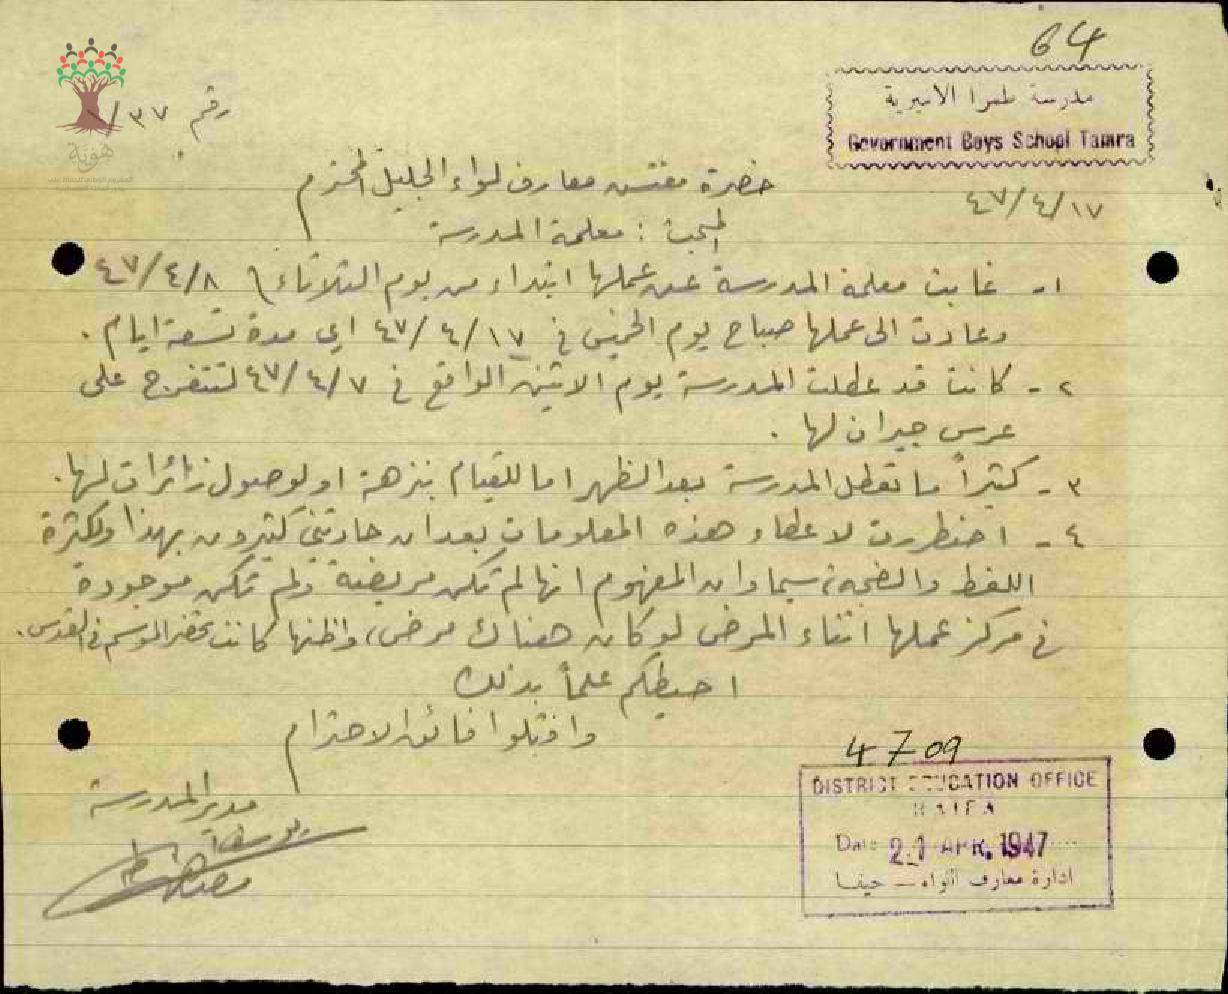 64
مدرسة طمرا الاميرية
Government Boys School Tamra
رقم ٣٧/١
٤٧/٤/١٧
حضرة مفتش معارف لواء الجليل المحترم
المبحث : معلمة المدرسة
١- غابت معلمة المدرسة عن عملها ابتداء من يوم الثلاثاء ٤٧/٤/٨
وعادت الى عملها صباح يوم الخميس في ٤٧/٤/١٧ اي مدة تسعة ايام .
٢- كانت قد عطلت المدرسة يوم الاثنين الواقع في ٤٧/٤/٧ لتتفرج على
عرس جيران لها .
٣- كثيراً ما تعطل المدرسة بعد الظهر اما للقيام بنزهة او لوصول زائرات لها .
٤- اضطررت لاعطاء هذه المعلومات بعد ان حادثني كثيرون بهذا ولكثرة
اللغط والضجة ، سيما وان المفهوم انها لم تكن مريضة ولم تكن موجودة
في مركز عملها اثناء المرض لو كان هناك مرض ، واظنها كانت تحضر الموسم في القدس .
احيطكم علماً بذلك
واقبلوا فائق الاحترام
مدير المدرسة
4709
DISTRICT EDUCATION OFFICE
HAIFA
Date 21 APR. 1947
ادارة معارف اللواء – حيفا
هوية